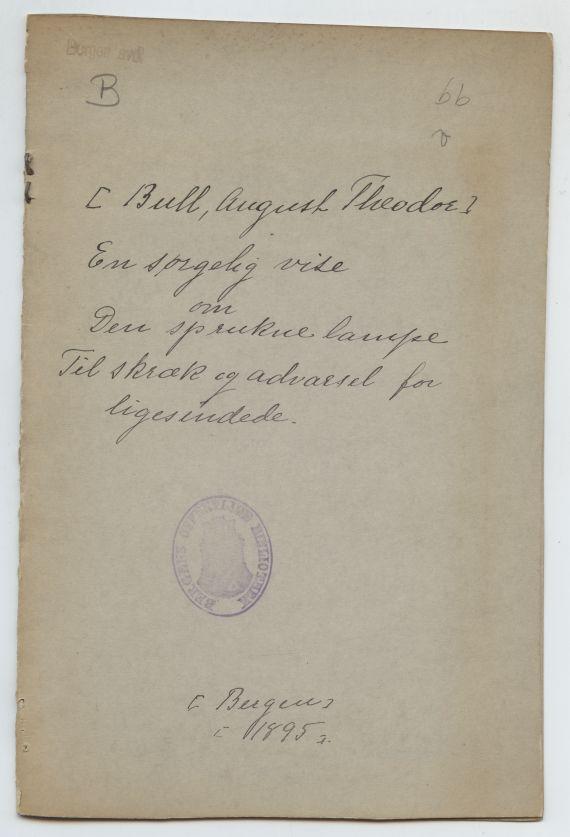 Bergen avd
B
bb
v
[ Bull, August Theodor ]
En sørgelig vise
om
Den sprukne lampe
Til skræk og advarsel for
ligesindede.
BERGENS OFFENTLIGE BIBLIOTHEK
[ Bergen ]
[ 1895 ].